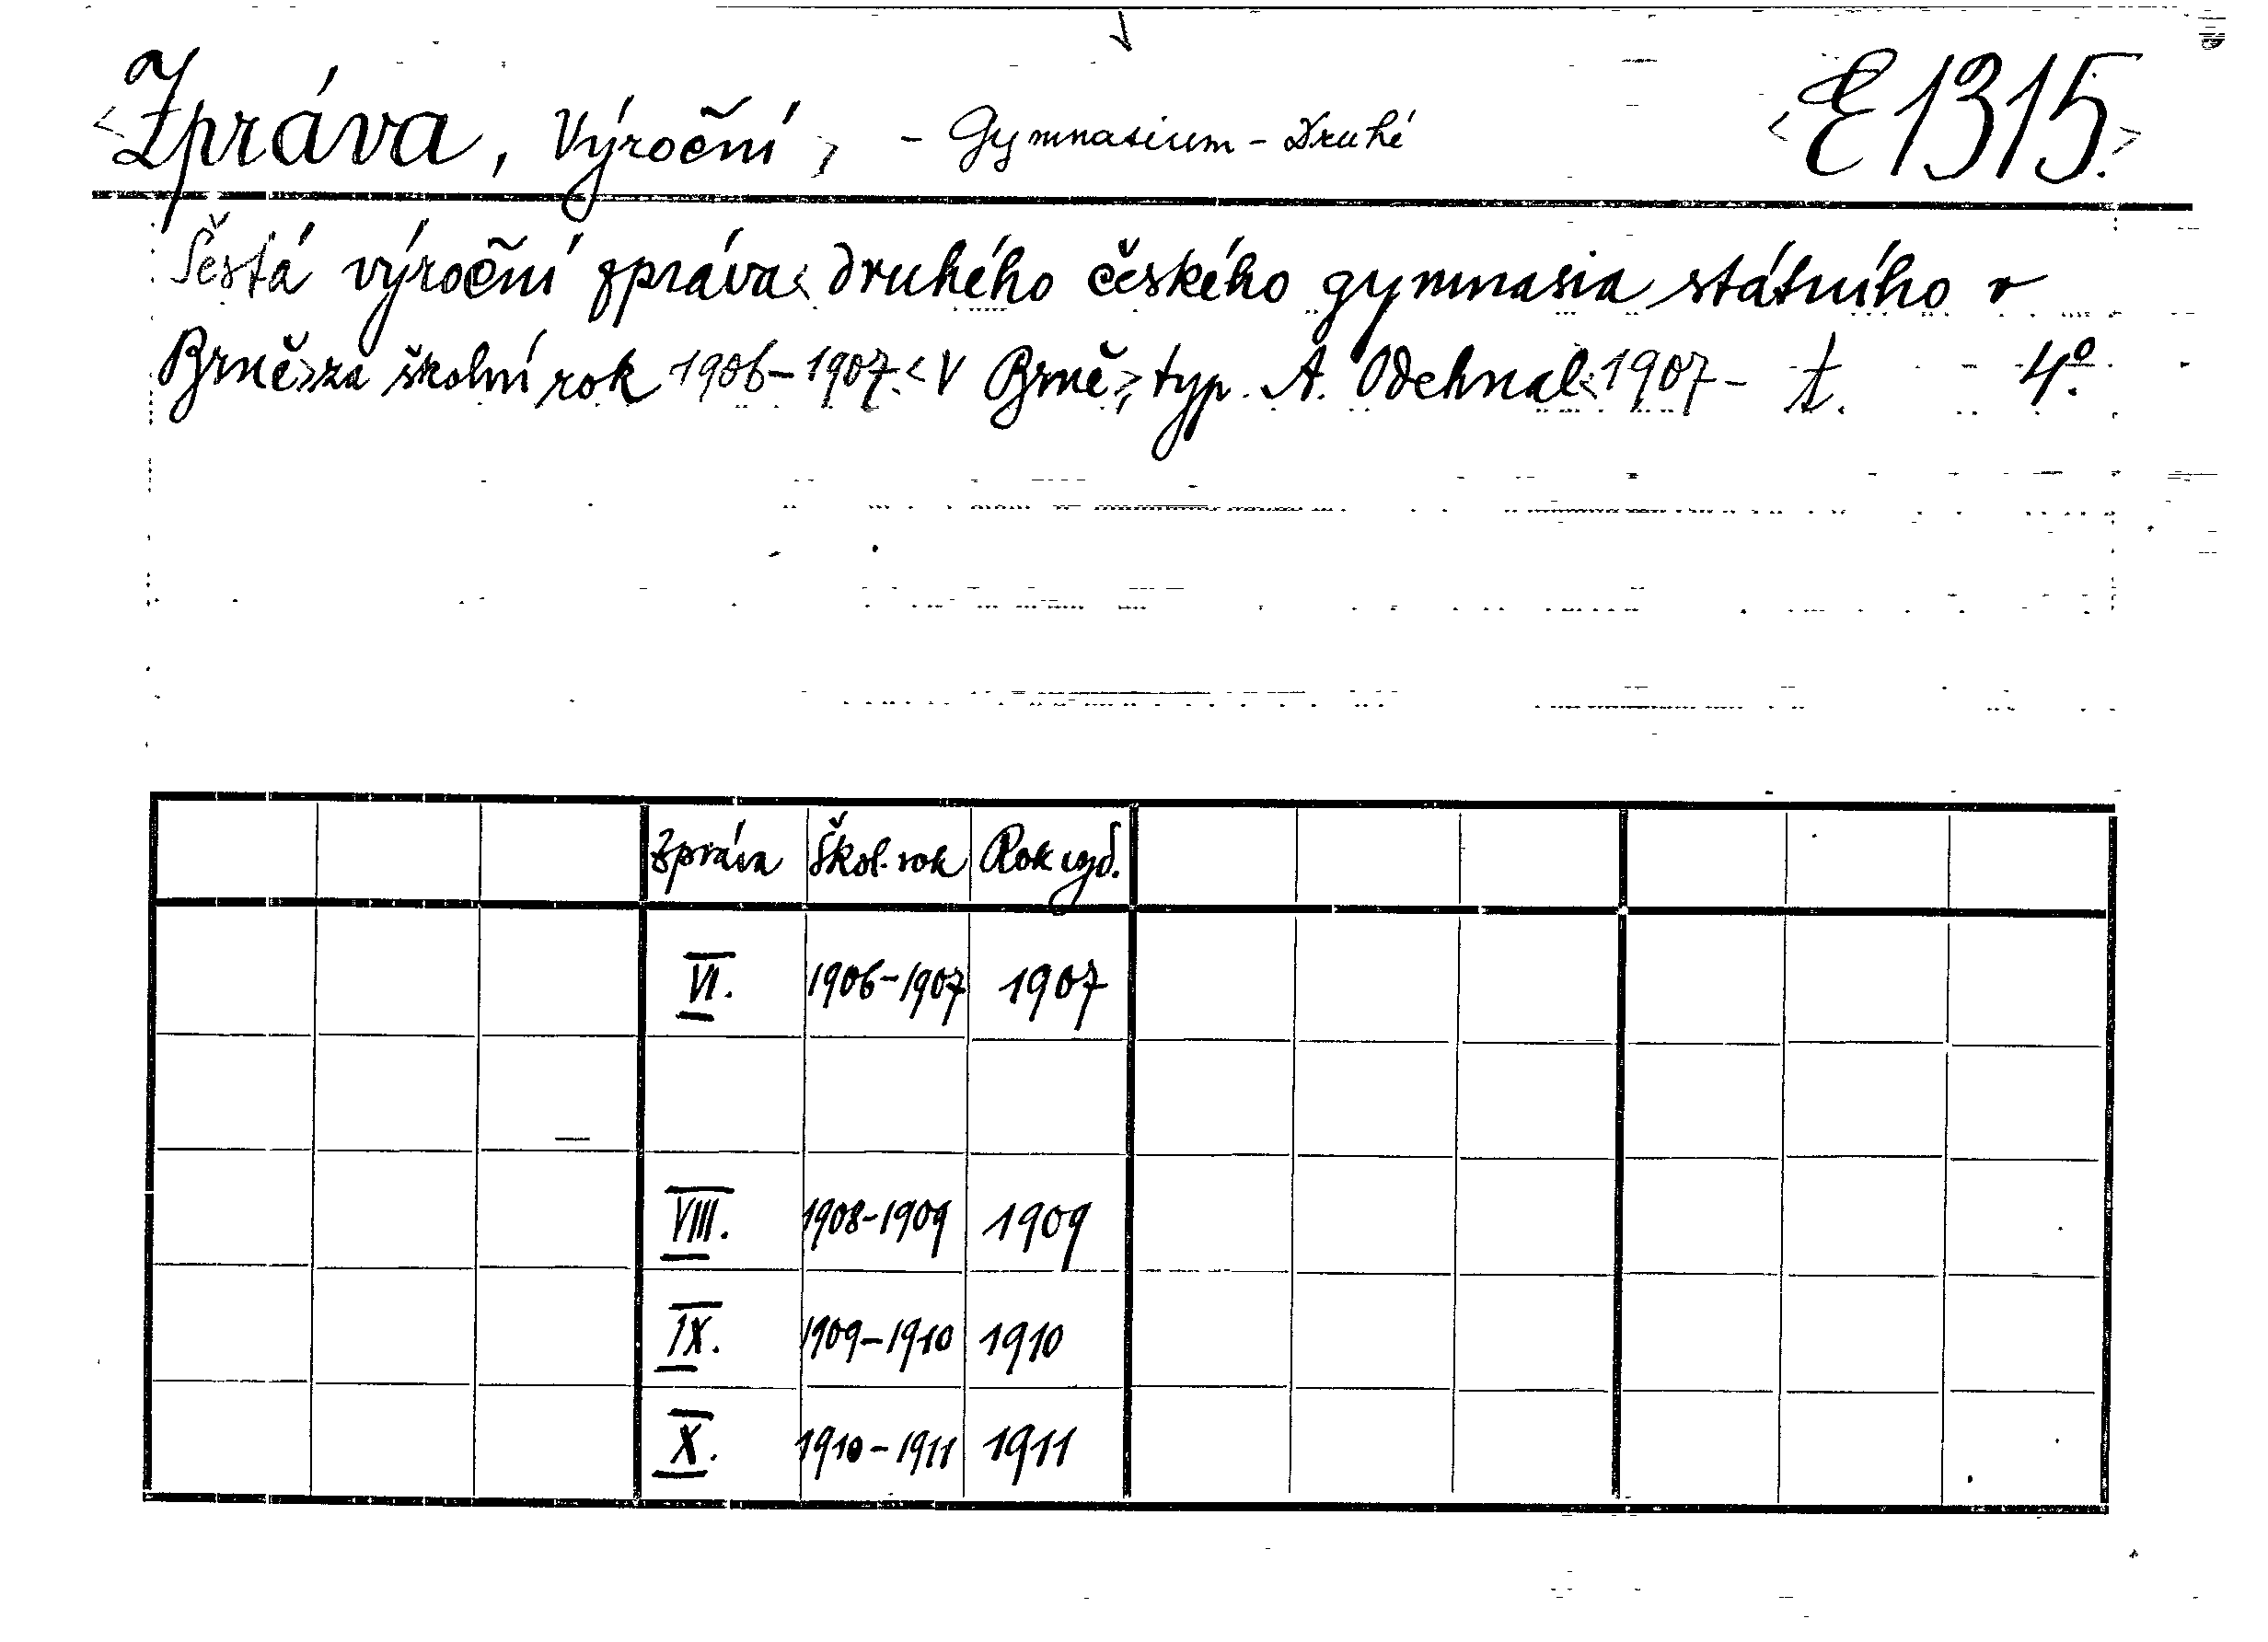 <Zpráva, Výroční,> - Gymnasium - Druhé <E1315.>
Šestá výroční zpráva< druhého českého gymnasia státního v
Brně>za školní rok 1906-1907.<V Brně>, typ. A. Odehnal<1907- t. 4º.
Zpráva Škol. rok Rok vyd.
VI. 1906-1907 1907
VIII. 1908-1909 1909
IX. 1909-1910 1910
X. 1910-1911 1911